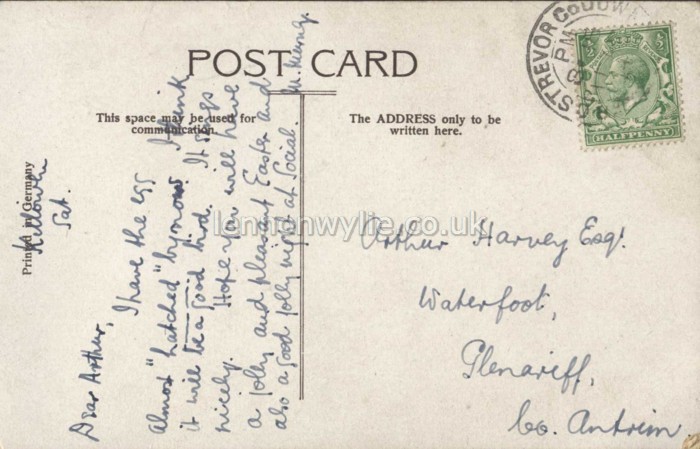 POST CARD
This space may be used for
communication.
The ADDRESS only to be
written here.
Printed in Germany
STREVOR CO DOW
PM
HALFPENNY
Killowen
Sat.
Dear Arthur,
I have the egg I think
almost "hatched" by now.
it will be a good bird. It sings
nicely. Hope you will have
a jolly and pleasant Easter and
also a good jolly night at Social.
Arthur Harvey Esq.
Waterfoot,
Glenariff,
Co. Antrim.
lennonwylie.co.uk